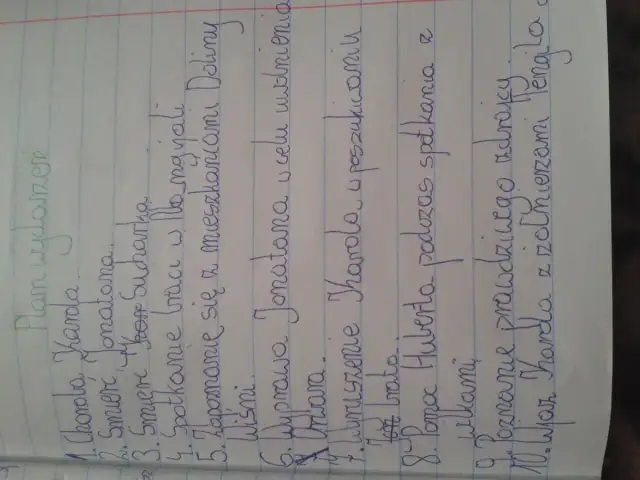 Plan wydarzeń
1. Choroba Karola.
2. Śmierć Jonatana.
3. Śmierć Sucharka.
4. Spotkanie braci w Nangijali
5. Zapoznanie się z mieszkańcami Doliny
Wiśni.
6. Wyprawa Jonatana w celu uwolnienia
Orwara.
7. Wyruszenie Karola w poszukiwaniu
brata.
8. Pomoc Huberta podczas spotkania z
wilkami,
9. Poznanie prawdziwego zdrajcy.
10. Wjazd Karola z żołnierzami Tengila